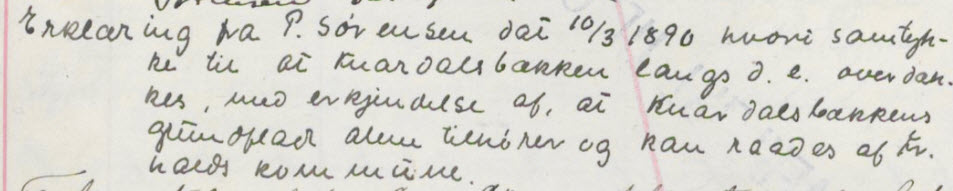 Erklæring fra P. Sørensen dat 10/3 1890 hvori samtyk-
ke til at Knardalsbækken langs d. e. overdæk-
kes, med erkjendelse af, at Knardalsbækkens
grundflade alene tilhører og kan raades af Fr.
halds kommune.